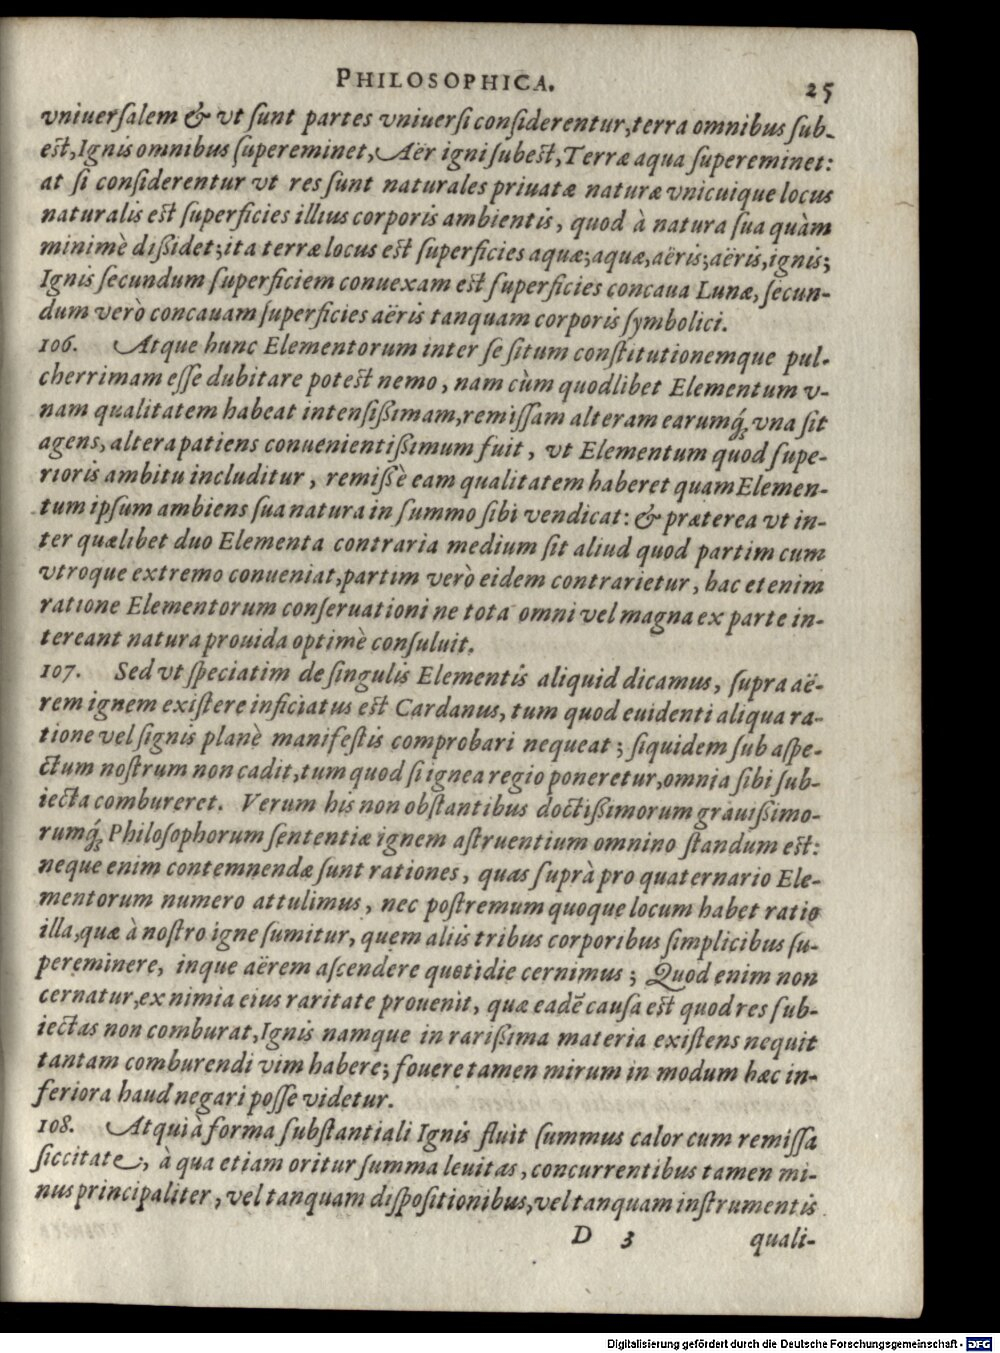 PHILOSOPHICA. 25
vniuerſalem & vt ſunt partes vniuerſi conſiderentur, terra omnibus ſub-
eſt, Ignis omnibus ſupereminet, Aër igni ſubeſt, Terræ aqua ſupereminet:
at ſi conſiderentur vt res ſunt naturales priuatæ naturæ vnicuique locus
naturalis eſt ſuperficies illius corporis ambientis, quod à natura ſua quàm
minimè dißidet; ita terræ locus eſt ſuperficies aquæ; aquæ, aëris; aëris, ignis;
Ignis ſecundum ſuperficiem conuexam eſt ſuperficies concaua Lunæ, ſecun-
dum verò concauam ſuperficies aëris tanquam corporis ſymbolici.
106. Atque hunc Elementorum inter ſe ſitum conſtitutionemque pul-
cherrimam eſſe dubitare poteſt nemo, nam cùm quodlibet Elementum v-
nam qualitatem habeat intenſißimam, remiſſam alteram earumq́; vna ſit
agens, altera patiens conuenientißimum fuit, vt Elementum quod ſupe-
rioris ambitu includitur, remißè eam qualitatem haberet quam Elemen-
tum ipſum ambiens ſua natura in ſummo ſibi vendicat: & præterea vt in-
ter quælibet duo Elementa contraria medium ſit aliud quod partim cum
vtroque extremo conueniat, partim verò eidem contrarietur, hac etenim
ratione Elementorum conſeruationi ne tota omni vel magna ex parte in-
tereant natura prouida optimè conſuluit.
107. Sed vt ſpeciatim de ſingulis Elementis aliquid dicamus, ſupra aë-
rem ignem exiſtere inficiatus eſt Cardanus, tum quod euidenti aliqua ra-
tione vel ſignis planè manifeſtis comprobari nequeat; ſiquidem ſub aſpe-
ctum noſtrum non cadit, tum quod ſi ignea regio poneretur, omnia ſibi ſub-
iecta combureret. Verum his non obſtantibus doctißimorum grauißimo-
rumq́; Philoſophorum ſententiæ ignem aſtruentium omnino ſtandum eſt:
neque enim contemnendæ ſunt rationes, quas ſuprà pro quaternario Ele-
mentorum numero attulimus, nec poſtremum quoque locum habet ratio
illa, quæ à noſtro igne ſumitur, quem aliis tribus corporibus ſimplicibus ſu-
pereminere, inque aërem aſcendere quotidie cernimus; Quod enim non
cernatur, ex nimia eius raritate prouenit, quæ eadẽ cauſa eſt quod res ſub-
iectas non comburat, Ignis namque in rarißima materia exiſtens nequit
tantam comburendi vim habere; fouere tamen mirum in modum hæc in-
feriora haud negari poſſe videtur.
108. Atqui à forma ſubſtantiali Ignis fluit ſummus calor cum remiſſa
ſiccitate, à qua etiam oritur ſumma leuitas, concurrentibus tamen mi-
nus principaliter, vel tanquam diſpoſitionibus, vel tanquam inſtrumentis
D 3 quali-
Digitalisierung gefördert durch die Deutsche Forschungsgemeinschaft - DFG